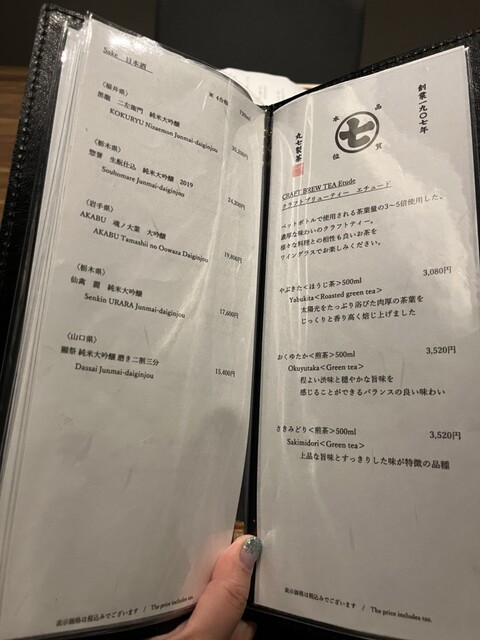 Sake 日本酒
※ 4合瓶 720ml
〈福井県〉
黒龍 二左衛門 純米大吟醸
KOKURYU Nizaemon Junmai-daiginjou
〈栃木県〉
惣誉 生酛仕込 純米大吟醸 2019
Souhomare Junmai-daiginjou 24,200円
〈岩手県〉
AKABU 魂ノ大業 大吟醸
AKABU Tamashii no Oowaza Daiginjou 19,800円
〈栃木県〉
仙禽 麗 純米大吟醸
Senkin URARA Junmai-daiginjou 17,600円
〈山口県〉
獺祭 純米大吟醸 磨き二割三分
Dassai Junmai-daiginjou 15,400円
表示価格は税込みでございます / The price includes tax.
創業一九〇七年
品質
七
本位
丸七製茶
CRAFT BREW TEA Etude
クラフトブリューティー エチュード
ペットボトルで使用される茶葉量の3〜5倍使用した、
濃厚な味わいのクラフトティー。
様々な料理との相性も良いお茶を
ワイングラスでお楽しみください。
3,080円
やぶきた<ほうじ茶>500ml
Yabukita<Roasted green tea>
太陽光をたっぷり浴びた肉厚の茶葉を
じっくりと香り高く焙じ上げました
おくゆたか<煎茶>500ml 3,520円
Okuyutaka<Green tea>
程よい渋味と穏やかな旨味を
感じることができるバランスの良い味わい
さきみどり<煎茶>500ml 3,520円
Sakimidori<Green tea>
上品な旨味とすっきりした味が特徴の品種
表示価格は税込みでございます / The price includes tax.